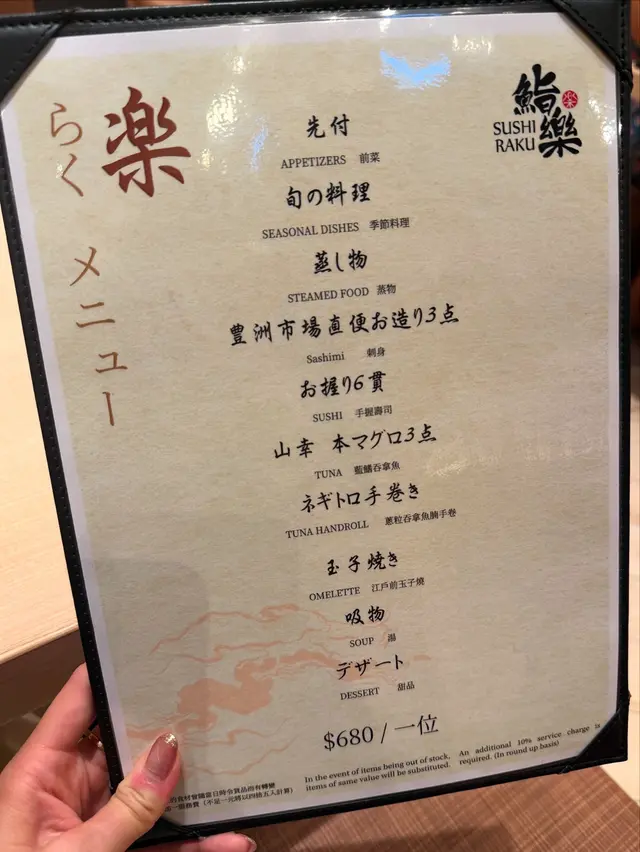 楽
らく メニュー
鮨樂
SUSHI
RAKU
先付
APPETIZERS 前菜
旬の料理
SEASONAL DISHES 季節料理
蒸し物
STEAMED FOOD 蒸物
豊洲市場直便お造り3点
Sashimi 刺身
お握り6貫
SUSHI 手握壽司
山幸 本マグロ3点
TUNA 藍鰭吞拿魚
ネギトロ手巻き
TUNA HANDROLL 蔥粒吞拿魚腩手卷
玉子焼き
OMELETTE 江戶前玉子燒
吸物
SOUP 湯
デザート
DESSERT 甜品
$680 / 一位
In the event of items being out of stock,
items of same value will be substituted.
An additional 10% service charge is
required. (In round up basis)
食材會隨當日時令貨品而有轉變
一服務費 (不足一元將以四捨五入計算)